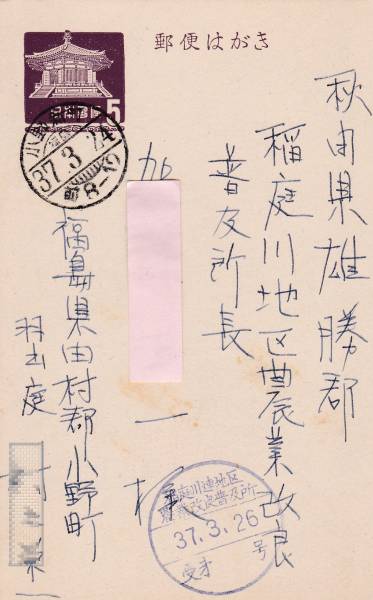 郵便はがき
日本郵便
5
37.3.24
前8-12
秋田県雄勝郡
稲庭川地区農業改良
普及所長
加
一
様
福島県田村郡小野町
羽出庭
庭川連地区
農業改良普及所
37.3.26
受 号